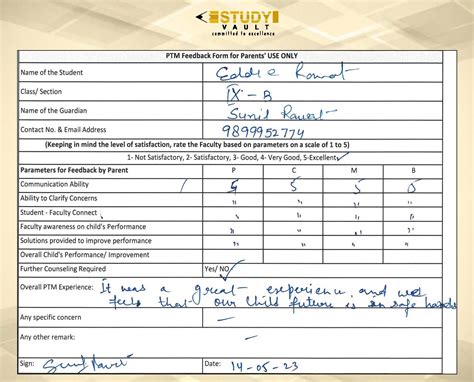 STUDY
VAULT
committed to excellence
PTM Feedback Form for Parents' USE ONLY
Name of the Student Eddie Rawat
Class/ Section IX - B
Name of the Guardian Sunil Rawat
Contact No. & Email Address 9899952774
(Keeping in mind the level of satisfaction, rate the Faculty based on parameters on a scale of 1 to 5)
1- Not Satisfactory, 2- Satisfactory, 3- Good, 4- Very Good, 5-Excellent
Parameters for Feedback by Parent P C M B
Communication Ability 5 5 5 5
Ability to Clarify Concerns " " " "
Student - Faculty Connect " " " "
Faculty awareness on child's Performance " " " "
Solutions provided to improve performance " " " "
Overall Child's Performance/ Improvement
Further Counseling Required Yes/ NO
Overall PTM Experience: It was a great experience and we
feels that our child future is in safe hands
Any specific concern
Any other remark:
Sign: Sunil Rawat Date: 14-05-23